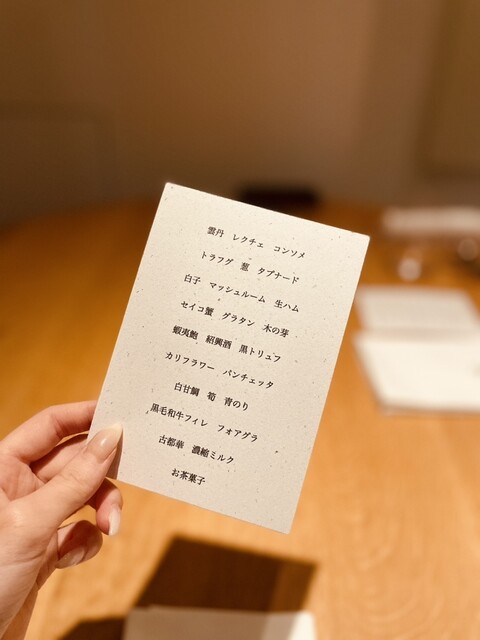 雲丹 レクチェ コンソメ
トラフグ 葱 タプナード
白子 マッシュルーム 生ハム
セイコ蟹 グラタン 木の芽
蝦夷鮑 紹興酒 黒トリュフ
カリフラワー パンチェッタ
白甘鯛 筍 青のり
黒毛和牛フィレ フォアグラ
古都華 濃縮ミルク
お茶菓子